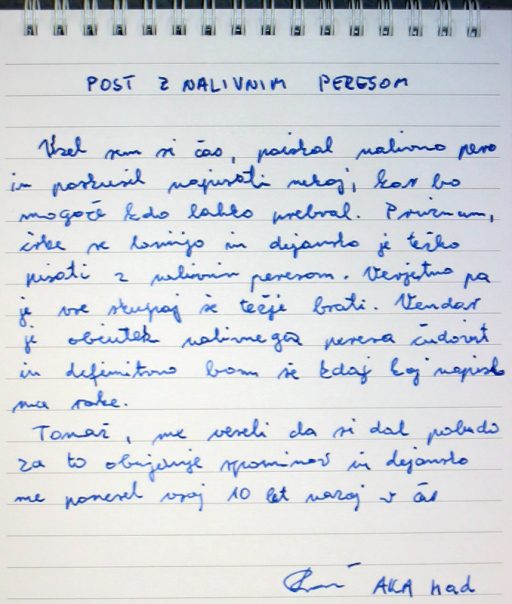 POST Z NALIVNIM PERESOM
Vzel sem si čas, poiskal nalivno pero
in poskusil napisati nekaj, kar bo
mogoče kdo lahko prebral. Priznam,
črke se lomijo in dejansko je težko
pisati z nalivnim peresom. Verjetno pa
je vse skupaj še težje brati. Vendar
je občutek nalivnega peresa čudovit
in definitivno bom še kdaj kaj napisal
na roke.
Tomaž, me veseli da si dal pobudo
za to obujanje spominov in dejansko
me ponesel vsaj 10 let nazaj v čas
AKA had